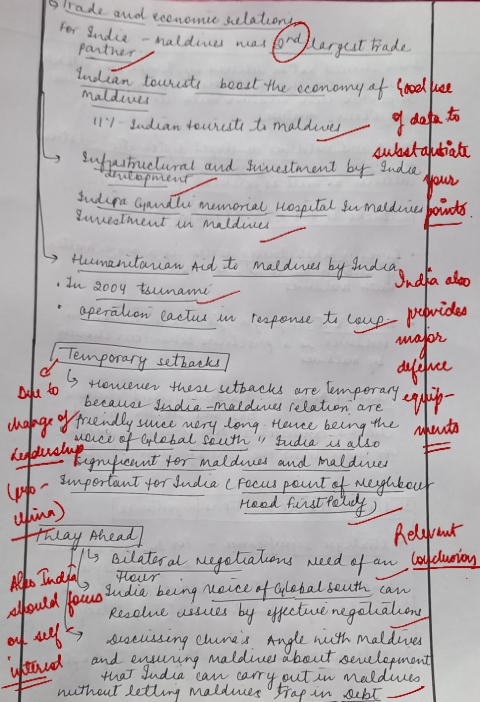 Trade and economic relations
For India - Maldives was 3rd largest trade
partner
Indian tourists boost the economy of
Maldives
11% - Indian tourists to Maldives
Good use
of data to
substantiate
your
points.
Infrastructural and Investment by India
development
Indira Gandhi memorial Hospital In Maldives
Investment in Maldives
Humanitarian Aid to Maldives by India
· In 2004 tsunami
· operation cactus in response to coup
India also
provides
major
defence
equip-
ments
Temporary setbacks
However these setbacks are temporary
because India-Maldives relation are
friendly since very long. Hence being the
"voice of Global South" India is also
significant for maldives and Maldives
Important for India (Focus point of Neighbour
Hood First Policy)
Due to
change of
Leadership
(pro-
China)
Way Ahead
Bilateral Negotiations Need of an
Hour
India being voice of Global South can
Resolve issues by effective negotiations
Discussing China's Angle with Maldives
and ensuring maldives about Development
that India can carry out in maldives
without letting maldives trap in Debt
Relevant
Conclusion
Also India
should focus
on self
interest